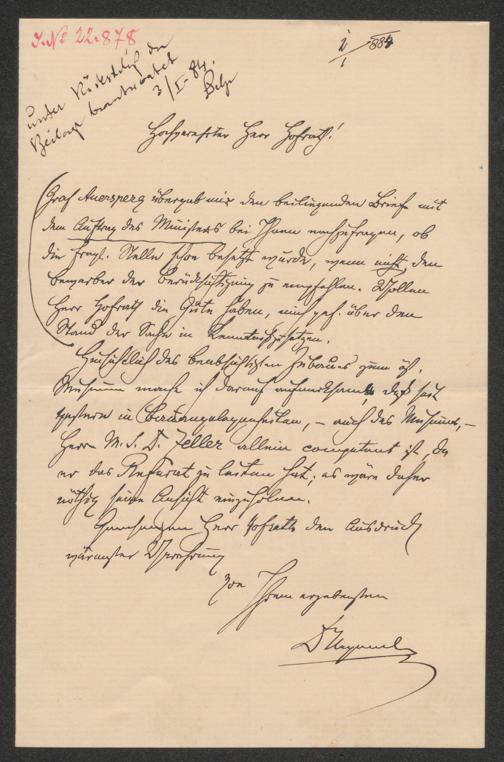 J. No 22.878
2/1 884
unter Rückschluß der
Beilage beantwortet
3/I. 84.
Hochverehrter Herr Hofrath!
Graf Auersperg übergab mir den beiliegenden Brief mit
dem Auftrag des Ministers bei Ihnen anzufragen, ob
die fragl. Stelle schon besetzt wurde, wenn nicht, den
Bewerber der Berücksichtigung zu empfehlen. Wollen
Herr Hofrath die Güte haben, mich gef. über den
Stand der Sache in Kenntniß zu setzen.
Hinsichtlich des beabsichtigten Zubaues zum öst.
Museum mache ich darauf aufmerksam, daß seit
gestern in Bauangelegenheiten, – auch des Museums, –
Herr M. S. D. Zeller allein competent ist, da
er das Referat zu leiten hat; es wäre daher
nöthig seine Ansicht einzuholen.
Genehmigen Herr Hofrath den Ausdruck
wärmster Verehrung
von Ihrem ergebensten